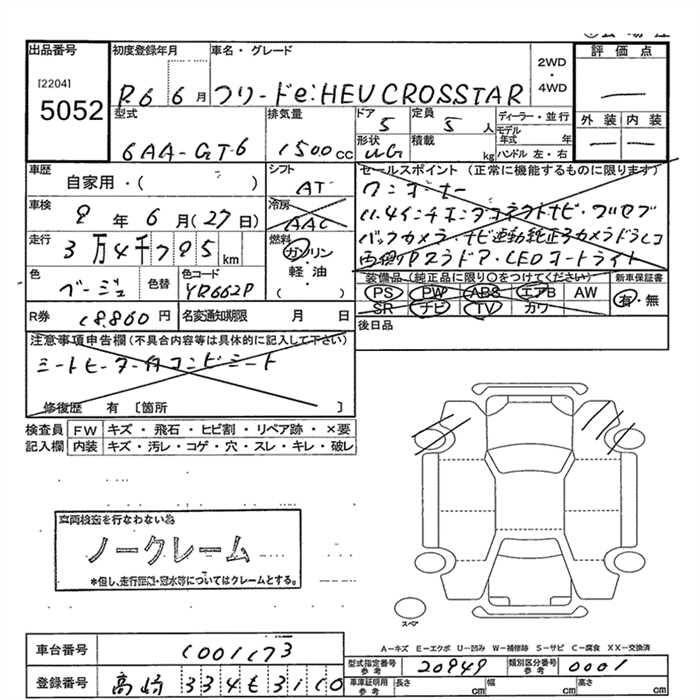 出品番号 初度登録年月 車名・グレード 2WD・4WD 評価点
[2204]
5052
R6 6月 フリードe:HEV CROSSTAR
型式 排気量 ドア 定員 ディーラー・並行
5 5人 モデル年式 年 外装 内装
6AA-GT6 1500cc 形状 積載 kg ハンドル 左・右
車歴 シフト セールスポイント(正常に機能するものに限ります)
自家用・( ) AT ワンオーナー
車検 冷房 11.4インチホンダコネクトナビ・フルセグ
8年6月(27日) AAC
走行 燃料 バックカメラ・ナビ連動純正
3万4千795km ガソリン 両側Pスラドア・LEDオートライト
軽油・( )
色 色替 色コード 装備品(純正品に限り○をつけてください) 新車保証書
ベージュ YR662P PS PW ABS エアB AW 有・無
SR ナビ TV カワ
R券 18,860円 名変通知期限 月 日 後日品
注意事項申告欄(不具合内容等は具体的に記入して下さい)
シートヒーター付コンビシート
修復歴 有 〔箇所 〕
検査員 FW キズ・飛石・ヒビ割・リペア跡・×要
記入欄 内装 キズ・汚レ・コゲ・穴・スレ・キレ・破レ
車両検査を行なわない為
ノークレーム
*但し、走行距離・冠水等についてはクレームとする。
スペア
A-キズ E-エクボ U-凹み W-補修跡 S-サビ C-腐食 XX-交換済
車台番号
型式指定番号 参考 20949 類別区分番号 参考 0001
登録番号 高崎 334
車庫証明用 参考 長さ cm 幅 cm 高さ cm